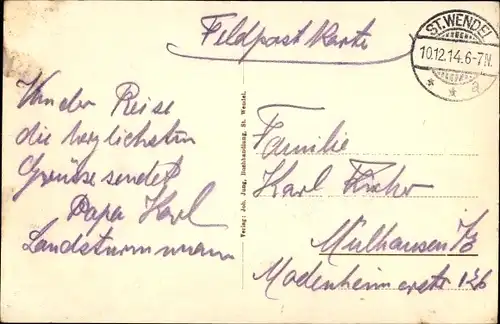 Feldpost Karte
ST. WENDEL
10.12.14.6-7N.
* * a
Von der Reise
die herzlichsten
Grüsse sendet
Papa Karl
Landsturmmann
Verlag: Joh. Jung, Buchhandlung, St. Wendel.
Familie
Karl
Mülhausen i/E
Modenheimerstr 126